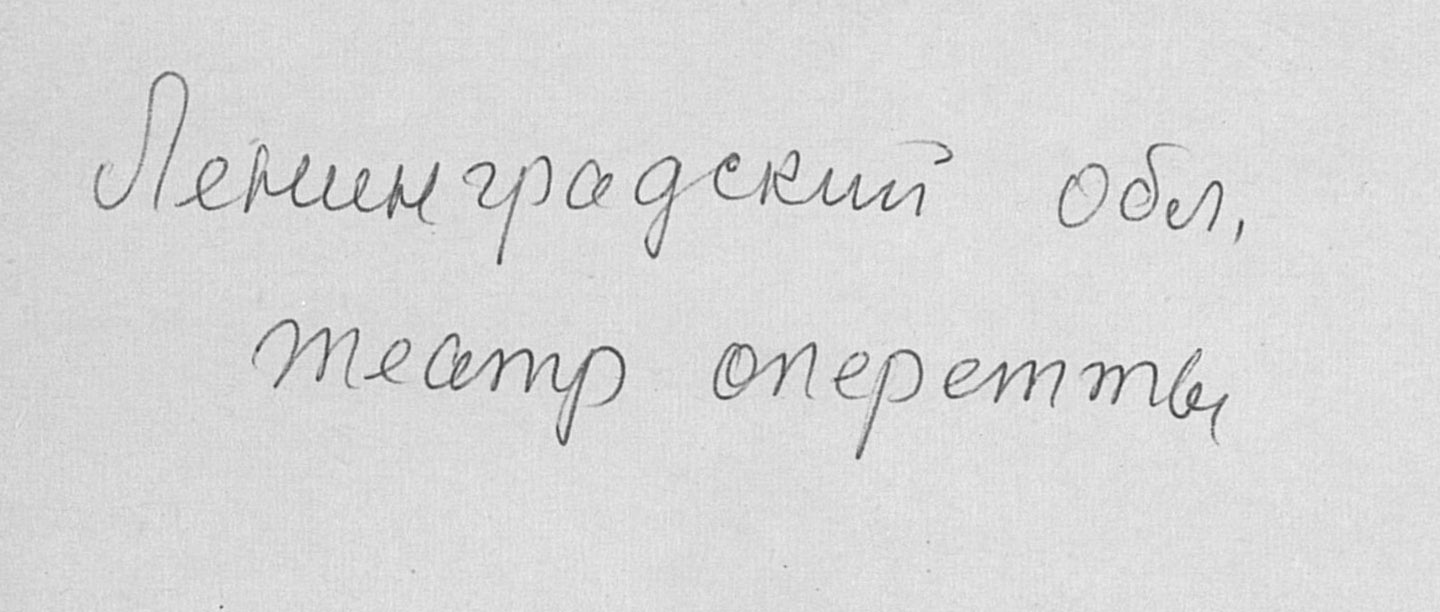 Ленинградский обл.
театр оперетты